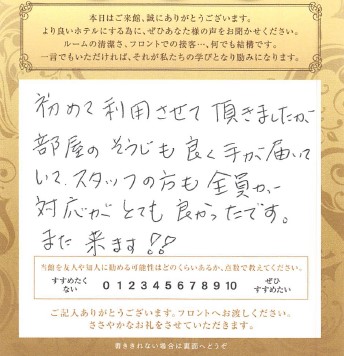 本日はご来館、誠にありがとうございます。
より良いホテルにする為に、ぜひあなた様の声をお聞かせください。
ルームの清潔さ、フロントでの接客…、何でも結構です。
一言でもいただければ、それが私たちの学びとなり励みになります。
初めて利用させて頂きましたが
部屋のそうじも良く手が届いて
いて、スタッフの方も全員が
対応がとても良かったです。
また来ます!!
当館を友人や知人に勧める可能性はどのくらいあるか、点数で教えてください。
すすめたくない 0 1 2 3 4 5 6 7 8 9 10 ぜひすすめたい
ご記入ありがとうございます。フロントへお渡しください。
ささやかなお礼をさせていただきます。
書ききれない場合は裏面へどうぞ